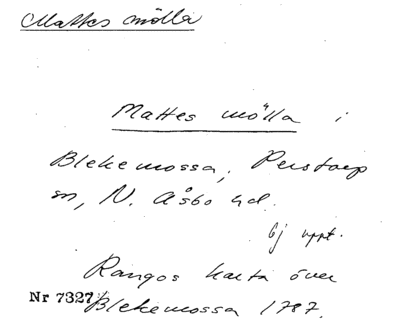 Mattes mölla
Mattes mölla i
Blekemossa, Perstorp
sn, N. Åsbo hd.
Ej uppt.
Rangos karta över
Nr 7327 Blekemossa 1787.